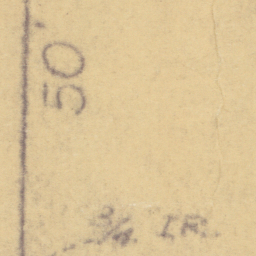 50'
3/4 I.R.